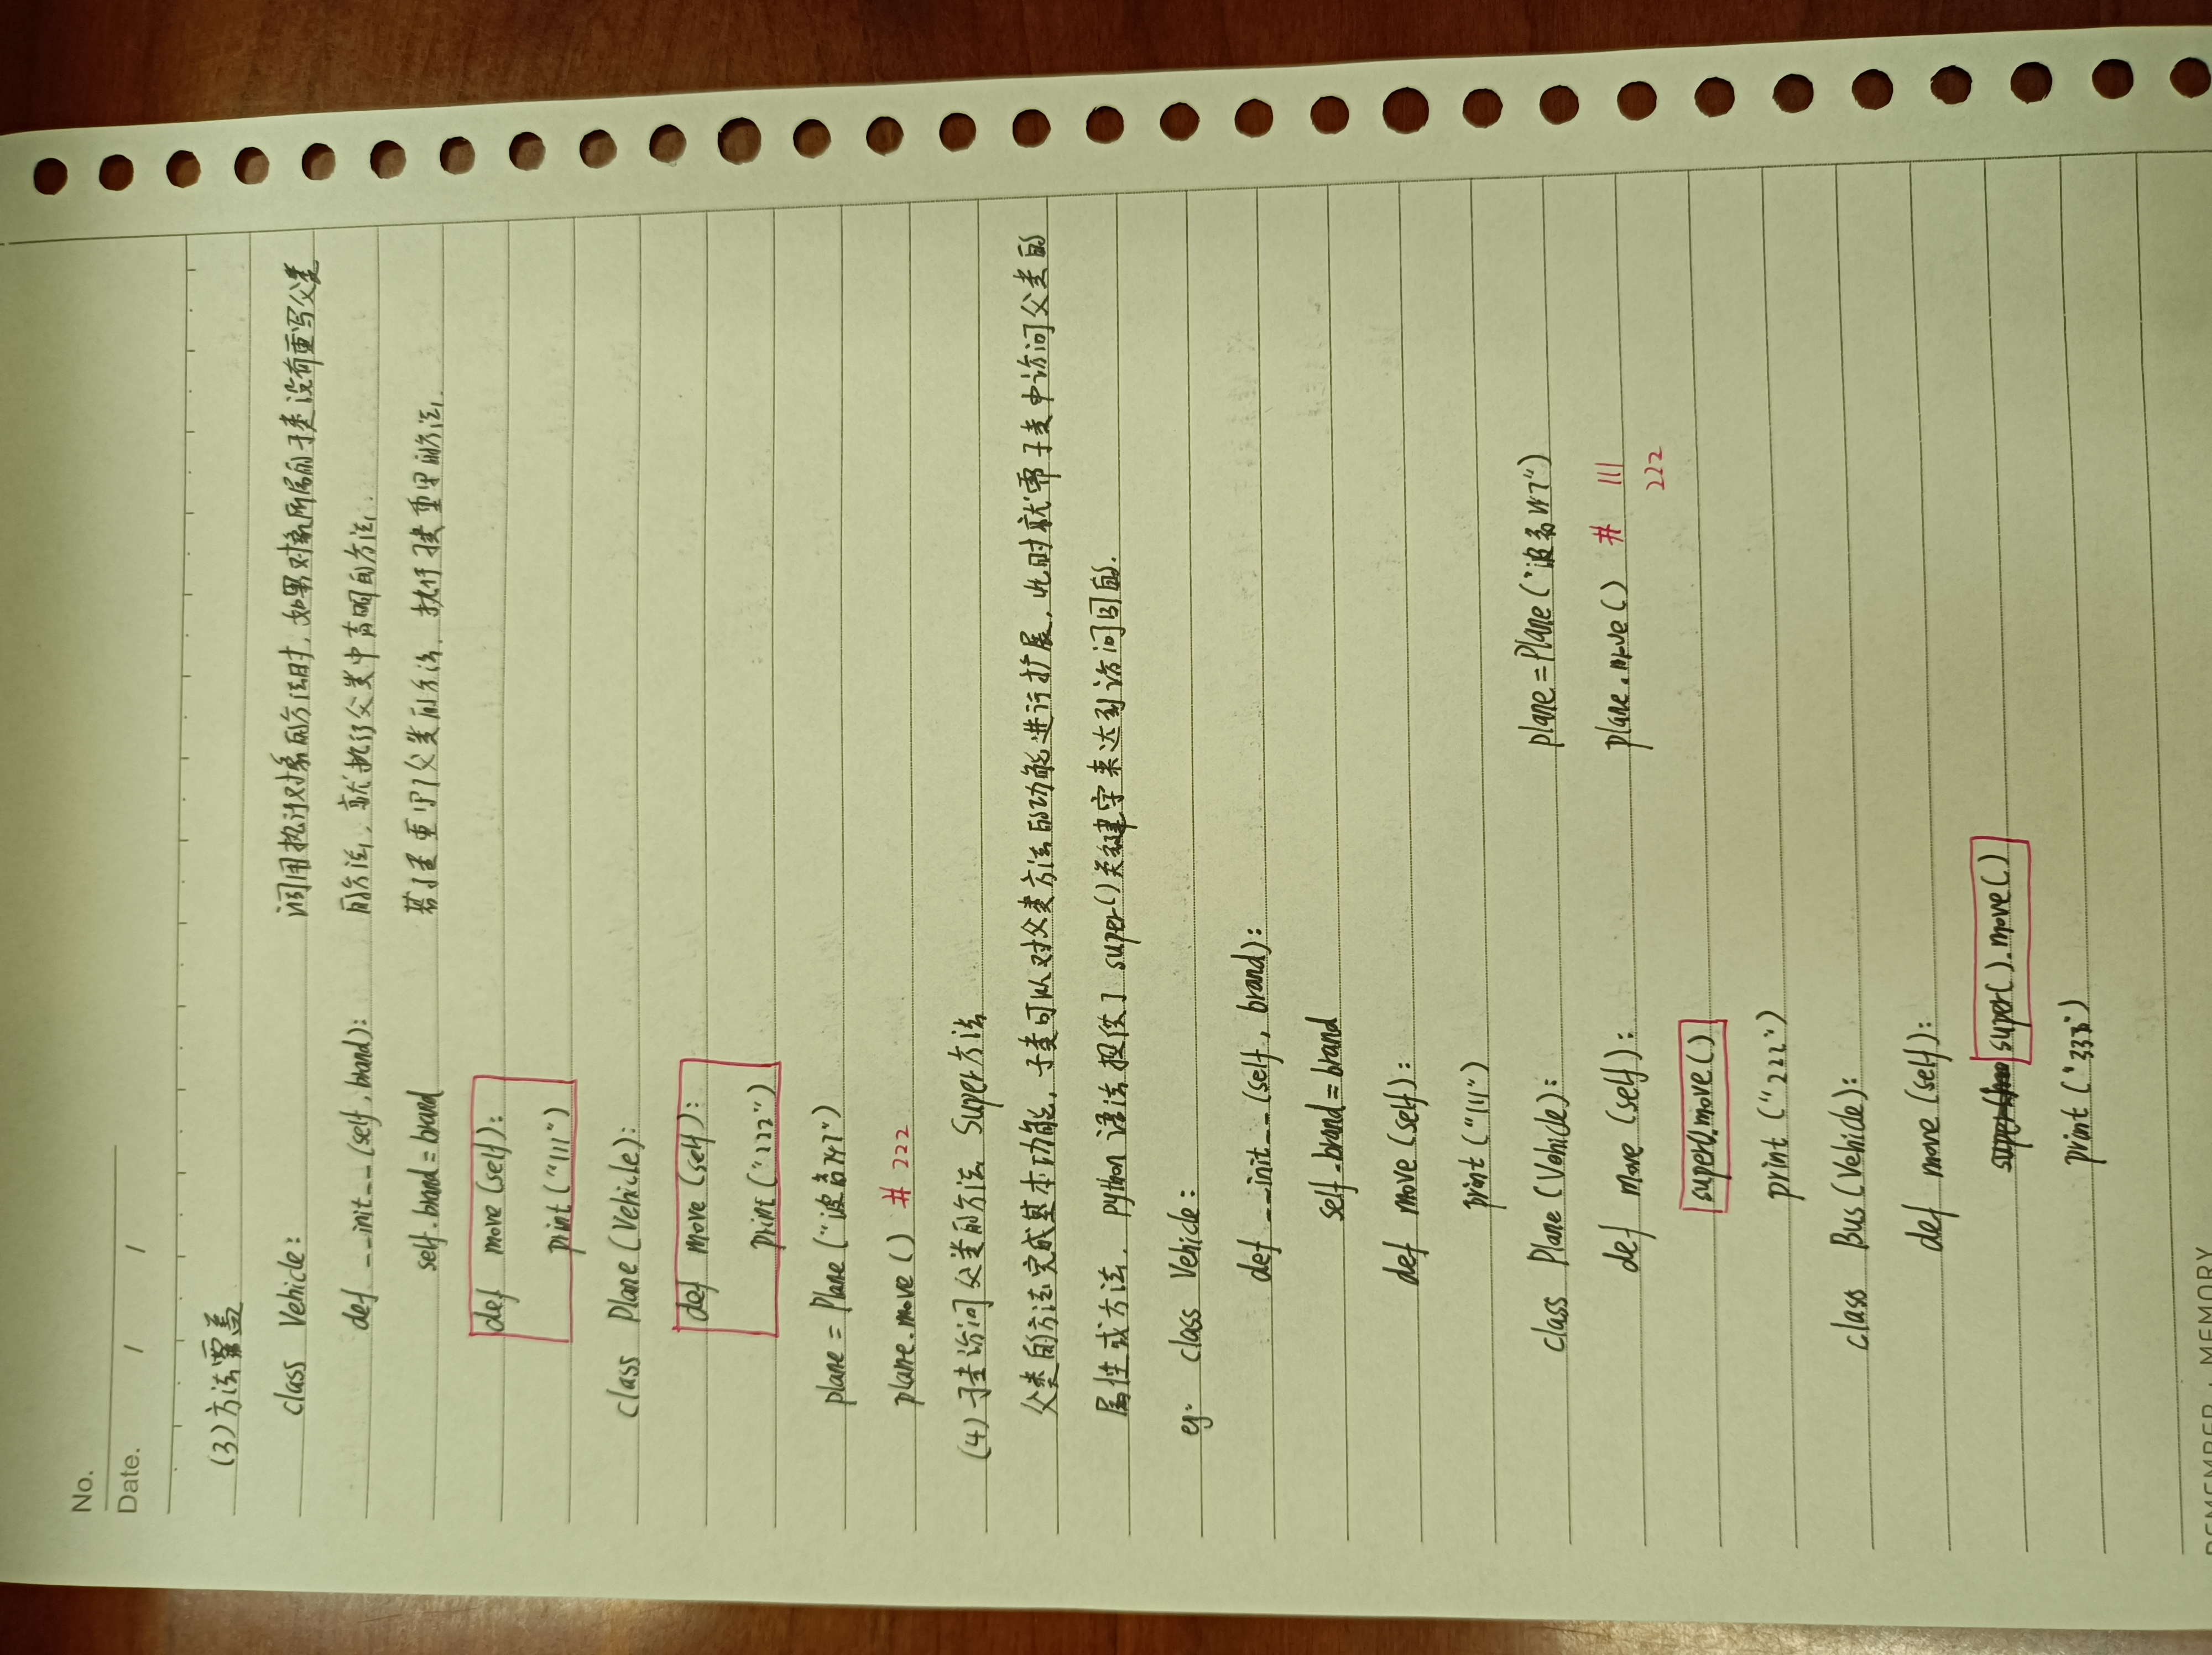 No.
Date. / /
(3)方法覆盖
class Vehicle:
def __init__(self, brand):
self.brand = brand
def move(self):
print("111")
调用执行对象的方法时,如果对象所属的子类没有重写父类
的方法,就执行父类中声明的方法.
若子类重写了父类的方法,执行子类重写的方法.
class Plane(Vehicle):
def move(self):
print("222")
plane = Plane("波音747")
plane.move() # 222
(4)子类访问父类的方法 Super方法
父类的方法完成基本功能,子类可以对父类方法的功能进行扩展,此时就需子类中访问父类的
属性或方法. python语法提供了 super()关键字来达到访问目的.
eg: class Vehicle:
def __init__(self, brand):
self.brand = brand
def move(self):
print("111")
class Plane(Vehicle):
def move(self):
super().move()
print("222")
plane = Plane("波音747")
plane.move() # 111
222
class Bus(Vehicle):
def move(self):
super().move()
print("333")
REMEMBER · MEMORY